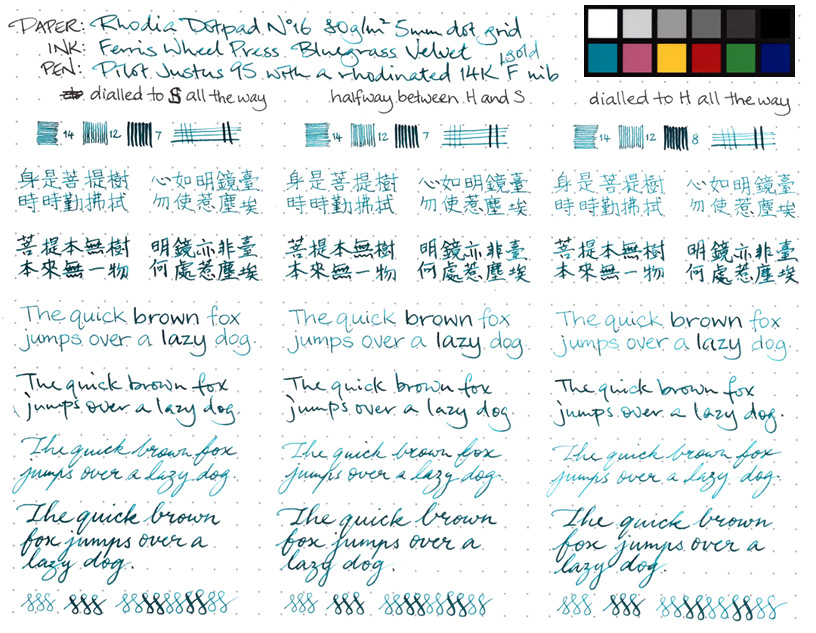 PAPER: Rhodia Dotpad N°16 80g/m² 5mm dot grid
INK: Ferris Wheel Press Bluegrass Velvet
PEN: Pilot Justus 95 with a rhodinated 14K gold F nib
dialled to S all the way
halfway between H and S
dialled to H all the way
14 12 7
14 12 7
14 12 8
身是菩提樹 心如明鏡臺
時時勤拂拭 勿使惹塵埃
身是菩提樹 心如明鏡臺
時時勤拂拭 勿使惹塵埃
身是菩提樹 心如明鏡臺
時時勤拂拭 勿使惹塵埃
菩提本無樹 明鏡亦非臺
本來無一物 何處惹塵埃
菩提本無樹 明鏡亦非臺
本來無一物 何處惹塵埃
菩提本無樹 明鏡亦非臺
本來無一物 何處惹塵埃
The quick brown fox
jumps over a lazy dog.
The quick brown fox
jumps over a lazy dog.
The quick brown fox
jumps over a lazy dog.
The quick brown fox
jumps over a lazy dog.
The quick brown fox
jumps over a lazy dog.
The quick brown fox
jumps over a lazy dog.
The quick brown fox
jumps over a lazy dog.
The quick brown fox
jumps over a lazy dog.
The quick brown fox
jumps over a lazy dog.
The quick brown
fox jumps over a
lazy dog.
The quick brown
fox jumps over a
lazy dog.
The quick brown
fox jumps over a
lazy dog.